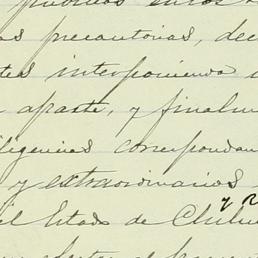 públicos
as precautorias, dec
tes interponiendo
aparte, y finalm
ligencias correspondan
y extraordinarios
y R
el Estado de Chihu